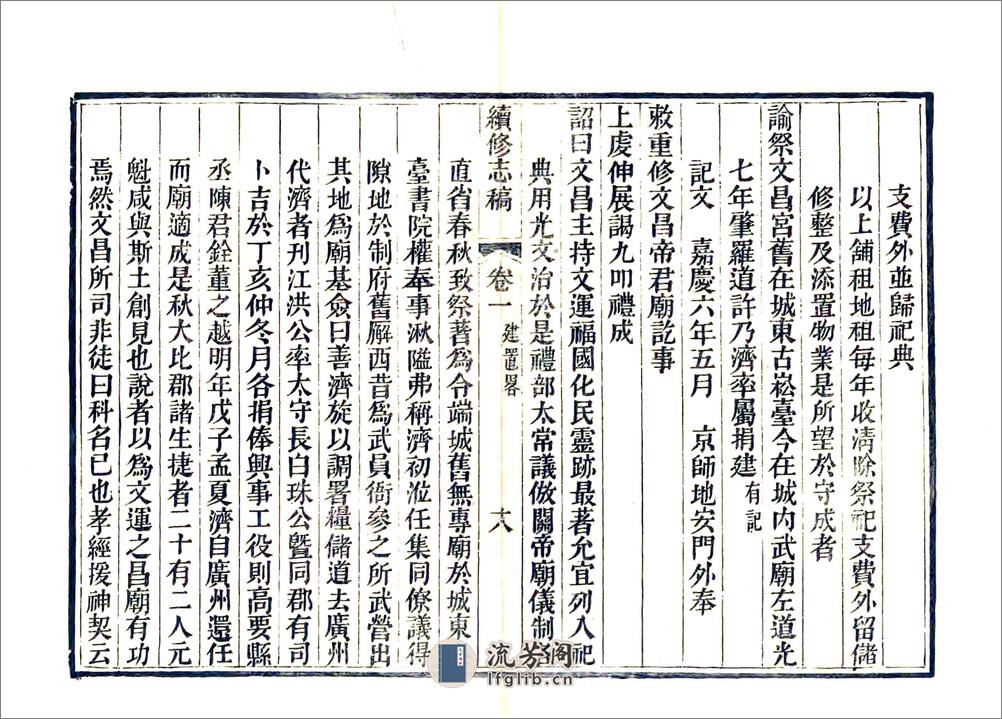 支費外並歸祀典
以上舖租地租每年收清除祭祀支費外留儲
修整及添置物業是所望於守成者
諭祭文昌宮舊在城東古崧臺今在城内武廟左道光
七年肇羅道許乃濟率屬捐建有記
記文　嘉慶六年五月　京師地安門外奉
敕重修文昌帝君廟訖事
上虔伸展謁九叩禮成
詔曰文昌主持文運福國化民靈跡最著允宜列入祀
典用光文治於是禮部太常議倣關帝廟儀制
續修志稿　卷一　建置畧　十八
直省春秋致祭著爲令端城舊無專廟於城東
臺書院權奉事湫隘弗稱濟初涖任集同僚議得
隙地於制府舊廨西昔爲武員衙參之所武營出
其地爲廟基僉曰善濟旋以調署糧儲道去廣州
代濟者刊江洪公率太守長白珠公曁同郡有司
卜吉於丁亥仲冬月各捐俸興事工役則高要縣
丞陳君銓董之越明年戊子孟夏濟自廣州還任
而廟適成是秋大比郡諸生捷者二十有二人元
魁咸與斯土創見也說者以爲文運之昌廟有功
焉然文昌所司非徒曰科名已也孝經援神契云
流芳阁
lfglib.cn